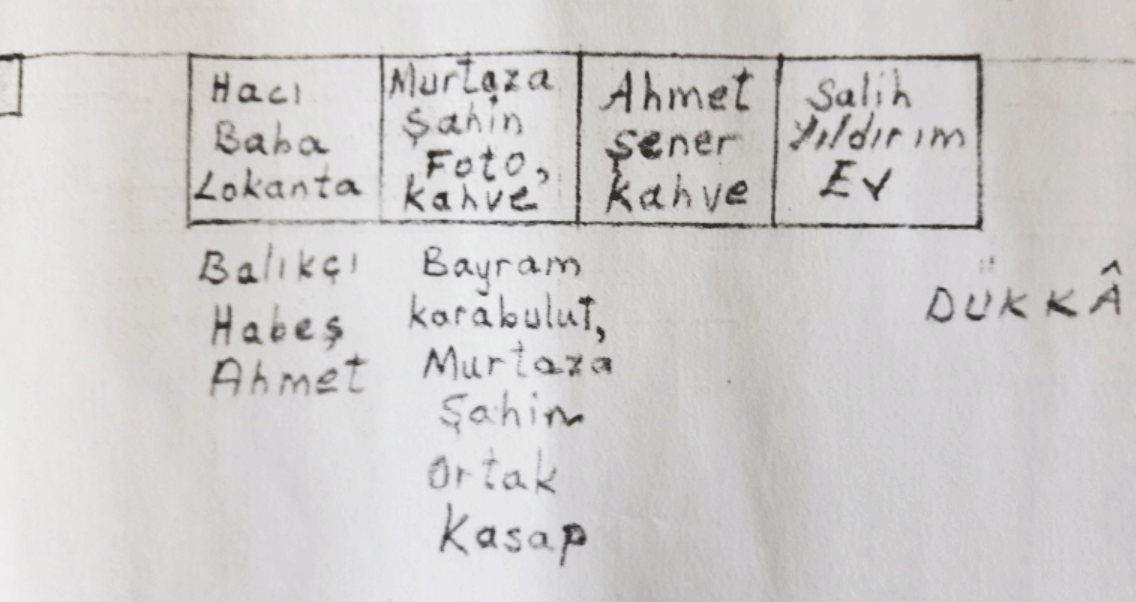 Hacı
Baba
Lokanta
Murtaza
Şahin
Foto,
kahve
Ahmet
Şener
kahve
Salih
Yıldırım
Ev
Balıkçı
Habeş
Ahmet
Bayram
karabulut,
Murtaza
Şahin
Ortak
Kasap
DÜKKÂ